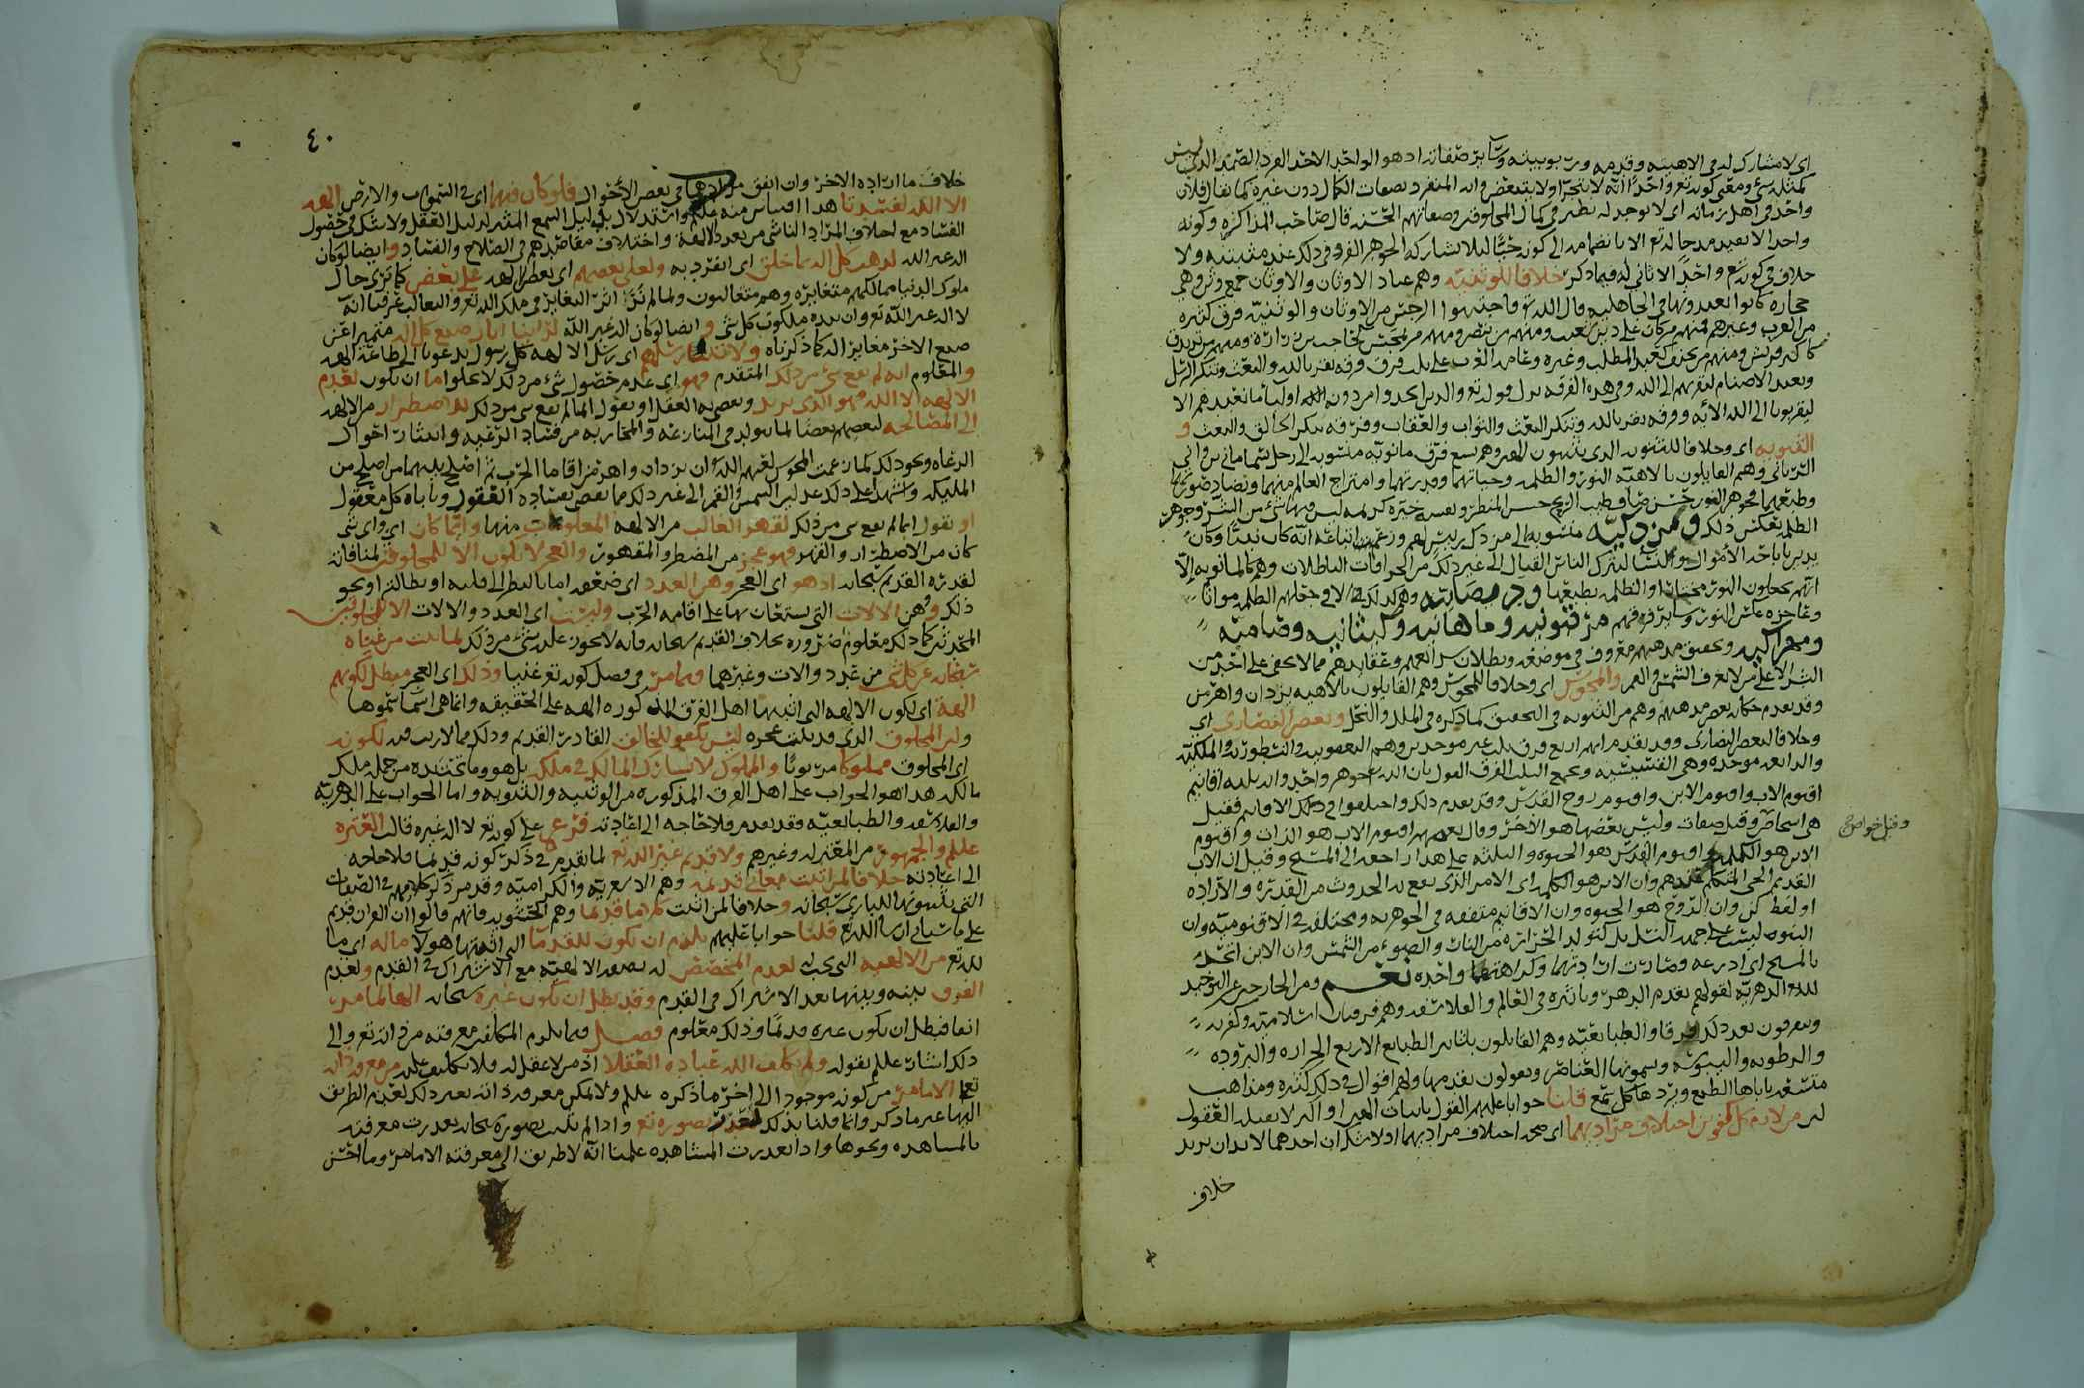 اي لا مشارك له في الاهيته وقدمه وربوبيته وسائر صفاته اذ هو الواحد الاحد الفرد الصمد الذي ليس
كمثله شي ومعنى كونه تع واحدا انه لا يتجزا ولا يتبعض وانه المنفرد بصفات الكمال دون غيره كما يقال فلان
واحد في اهل زمانه اي لا يوجد له نظير في كمال المخلوقين وصفاتهم الحسنه قال صاحب المذاكره وكونه
واحدا لا يفيد مدحا له تع الا بانضمامه الى كونه حيا لئلا يشاركه الجوهر الفرد في ذلك عند مثبتيه ولا
خلاف في كونه تع واحدا لا ثاني له فيما ذكر خلافا للوثنيه وهم عباد الاوثان والاوثان جمع وثن وهي
حجاره كانوا يعبدونها في الجاهليه قال الله تع فاجتنبوا الرجس من الاوثان والوثنيه فرق كثيره
من العرب وغيرهم فمنهم من كان على دين ومنهم من تنصر ومنهم من تمجس كحاجب بن زراره ومنهم من تزندق
كاكثر قريش ومنهم كعبد المطلب وغيره وعامه العرب على ثلاث فرق فرقه تقر بالله والبعث وتنكر الرسل
وتعبد الاصنام لتقربهم الى الله وفي هذه الفرقه نزل قوله تع والذين اتخذوا من دونه اوليا ما نعبدهم الا
ليقربونا الى الله الايه وفرقه تقر بالله وتنكر البعث والثواب والعقاب وفرقه تنكر الخالق والبعث و
الثنويه اي وخلافا للثنويه الذين يثبتون الهين وهم تسع فرق مانويه منسوبه الى رجل يسمى ماني بن واني
الثرياني وهم القايلون بالاهيه النور والظلمه وحياتهما وقدرتهما وامتزاج العالم منهما وتضاد صورتهما
وطبعهما فجوهر النور حسن صاف طيب الريح حسن المنظر ونفسه خيره كريمه ليس فيها شي من الشر وجوهر
الظلمه بعكس ذلك ومزدكيه منسوبه الى مزدك رئيس لهم وزعم اتباعه انه كان نبيا وكان
الاموال والنسا ليترك الناس القتال الى غير ذلك من الخرافات الباطلات وهم كالمانويه الا
انهم يجعلون النور مختارا والظلمه بطبعها وديصانيه وهم كذلك الا في جعلهم الظلمه مواتا
وعاجزه عكس النور وسائر فرقهم مرقيونيه وماهانيه وكينانيه وصاميه
ومهراكيه وتحقيق مذهبهم معروف في موضعه وبطلان شرائعهم وعقائدهم مما لا يخفى على احد من
البشر الا على من لا يعرف الشمس والقمر والمجوس اي وخلافا للمجوس وهم القايلون بالاهيه يزدان واهرمن
وقد تقدم حكايه بعض مذهبهم وهم من الثنويه في التحقيق كما ذكره في الملل والنحل وبعض النصارى اي
وخلافا لبعض النصارى وقد تقدم انهم اربع فرق ثلاث غير موحدين وهم اليعقوبيه والنسطوريه والملكيه
والرابعه موحده وهي ويجمع الثلاث الفرق القول بان الله تع جوهر واحد وانه ثلثه اقانيم
اقنوم الاب واقنوم الابن واقنوم روح القدس وقد تقدم ذلك واختلفوا في الاقانيم فقيل
هي اشخاص وقيل صفات وليس بعضها هو الاخر وقال بعضهم اقنوم الاب هو الذات واقنوم
الابن هو الكلمه واقنوم القدس هو الحيوه والثلثه على هذا راجعه الى المسيح وقيل ان الاب
القديم الحي المتكلم عندهم وان الابن هو الكلمه اي الامر الذي يقع به الحدوث من القدره والاراده
او لفظ كن وان الروح هو الحيوه وان الاقانيم متفقه في الجوهريه ومختلفه في الاقنوميه وان
البنوه ليست على جهه النسل بل كتولد الحراره من النار والضوء من الشمس وان الابن اتحد
بالمسيح اي ادرعه وصارت ارادتهما وكراهتهما واحده نعم ومن الخارجين عن التوحيد
لله الدهريه لقولهم بقدم الدهر وتاثيره في العالم والفلاسفه وهم فرقتان اسلاميه وكفريه
ويتفرقون بعد ذلك فرقا والطبائعيه وهم القايلون بتاثير الطبايع الاربع الحراره والبروده
والرطوبه واليبوسه ويسمونها العناصر ويقولون بقدمها ولهم اقوال في ذلك كثيره ومذاهب
متشعبه ياباها الطبع ويردها كل سمع قلنا جوابا عليهم القول باثبات الهين او اكثر لا يقبله العقول
لان من لازم كل كفوين اختلاف مراديهما اي صحه اختلاف مراديهما اذ لا شك ان احدهما لا بد ان يريد
خلاف
وقيل خواص
٤٠
خلاف ما اراده الاخر وان اتفق مرادهما في بعض الاحوال فلو كان فيهما اي في السموات والارض الهه
الا الله لفسدتا هذا اقتباس منه علم واستدلال بدليل السمع المثير لدليل العقل ولا شك في حصول
الفساد مع اختلاف المراد الناشي من تعدد الالهه واختلاف مقاصدهم في الصلاح والفساد وايضا لو كان
اله غير الله لذهب كل اله بما خلق اي انفرد به ولعلى بعضهم اي بعض الالهه على بعض كما ترى حال
ملوك الدنيا ممالكهم متغايره وهم متغالبون ولما لم نر اثر التغاير في ملك الله تع والتغالب عرفنا انه
لا اله غير الله تع وان بيده ملكوت كل شي و ايضا لو كان اله غير الله لراينا اثار صنع كل اله متميزا عن
صنع الاخر مغاير اله كما ذكرناه ولاتتنا رسلهم اي رسل الالهه كل رسول يدعونا الى طاعه الهه
والمعلوم انه لم يقع شي من ذلك المتقدم وهو اي عدم حصول شي من ذلك لا يخلو اما ان يكون لعدم
الالهه الا الله فهو الذي نريد ويقضي به العقل او نقول انما لم يقع شي من ذلك لاضطرار من الالهه
الى المصالحه لبعضهم بعضا لما يتولد في المنازعه والمحاربه من فساد الرعيه وانتثار احوال
الرعاه ونحو ذلك كما زعمت المجوس لعنهم الله ان يزدان واهرمن اقاما الحرب ثم اصلح بينهما من اصلح من
المليكه واشهد على ذلك عدلين الشمس والقمر الى غير ذلك مما يقضي بفساده العقول وياباه كل معقول
او نقول انما لم يقع شي من ذلك لقهر الغالب من الالهه المغلوب منها وايا ما كان اي واي شي
كان من الاضطرار والقهر فهو عجز من المضطر والمقهور والعجز لا يكون الا للمخلوقين لمنافاته
لقدره القديم سبحانه اذ هو اي العجز وهن العدد اي ضعفه اما بالنظر الى قلته او بطالته او نحو
ذلك وهن الالات التي يستعان بها على اقامه الحرب وليست اي العدد والالات الا للمخلوقين
المحدثين كما ذلك معلوم ضروره بخلاف القديم سبحانه فانه لا يجوز عليه شي من ذلك لما ثبت من غناه
سبحانه عن كل شي من عدد والات وغيرهما وبما مر في فصل كونه تع غنيا وذلك اي العجز مبطل لكونهم
الهه اي لكون الالهه التي اثبتها اهل الفرق المذكوره الهه على الحقيقه وانما هي اسما سموها
ولان المخلوق الذي قد ثبت عجزه ليس بكفو للخالق القادر القديم وذلك مما لا ريب فيه لكونه
اي المخلوق مملوكا مربوبا والمملوك لا يشارك المالك في ملكه بل هو وما تحت يده من جمله ملك
مالكه هذا هو الجواب على اهل الفرق المذكوره من الوثنيه والثنويه واما الجواب على الدهريه
والفلاسفه والطبائعيه فقد تقدم فلا حاجه الى اعادته فرع على كونه تع لا اله غيره قالت العتره
علم والجمهور من المعتزله وغيرهم ولا قديم غير الله تع لما تقدم في ذكر كونه قديما فلا حاجه
الى اعادته خلافا لمن اثبت معاني قديمه وهم الاشعريه والكراميه وقد مر ذكر كلامهم في الصفات
التي يثبتونها للباري سبحانه وخلافا لمن اثبت كلاما قديما وهم الحشويه فانهم قالوا ان القران قديم
على ما سياتي ان شا الله تع قلنا جوابا عليهم يلزم ان تكون للقدما التي اثبتها هولا ماله اي ما
لله تع من الالهيه التي تجب له لعدم المخصص له بصفه الالهيه مع الاشتراك في القدم ولعدم
الفرق بينه وبينها بعد الاشتراك في القدم وقد بطل ان يكون غيره سبحانه الها لما مر
انفا فبطل ان يكون غيره قديما وذلك معلوم فصل فيما يلزم المكلف معرفته من ذاته تع والى
ذلك اشار علم بقوله ولم يكلف الله عباده العقلا اذ من لا عقل له فلا تكليف عليه من معرفه ذاته
تع الا ما مر من كونه موجودا الى اخر ما ذكره علم ولا يمكن معرفه ذاته بغير ذلك لعدم الطريق
اليها غير ما ذكر وانما قلنا بذلك لتعذر تصوره تع واذا لم يثبت تصوره سبحانه تعذرت معرفته
بالمشاهده ونحوها واذا تعذرت المشاهده علمنا انه لا طريق الى معرفته الا ما مر وما احسن